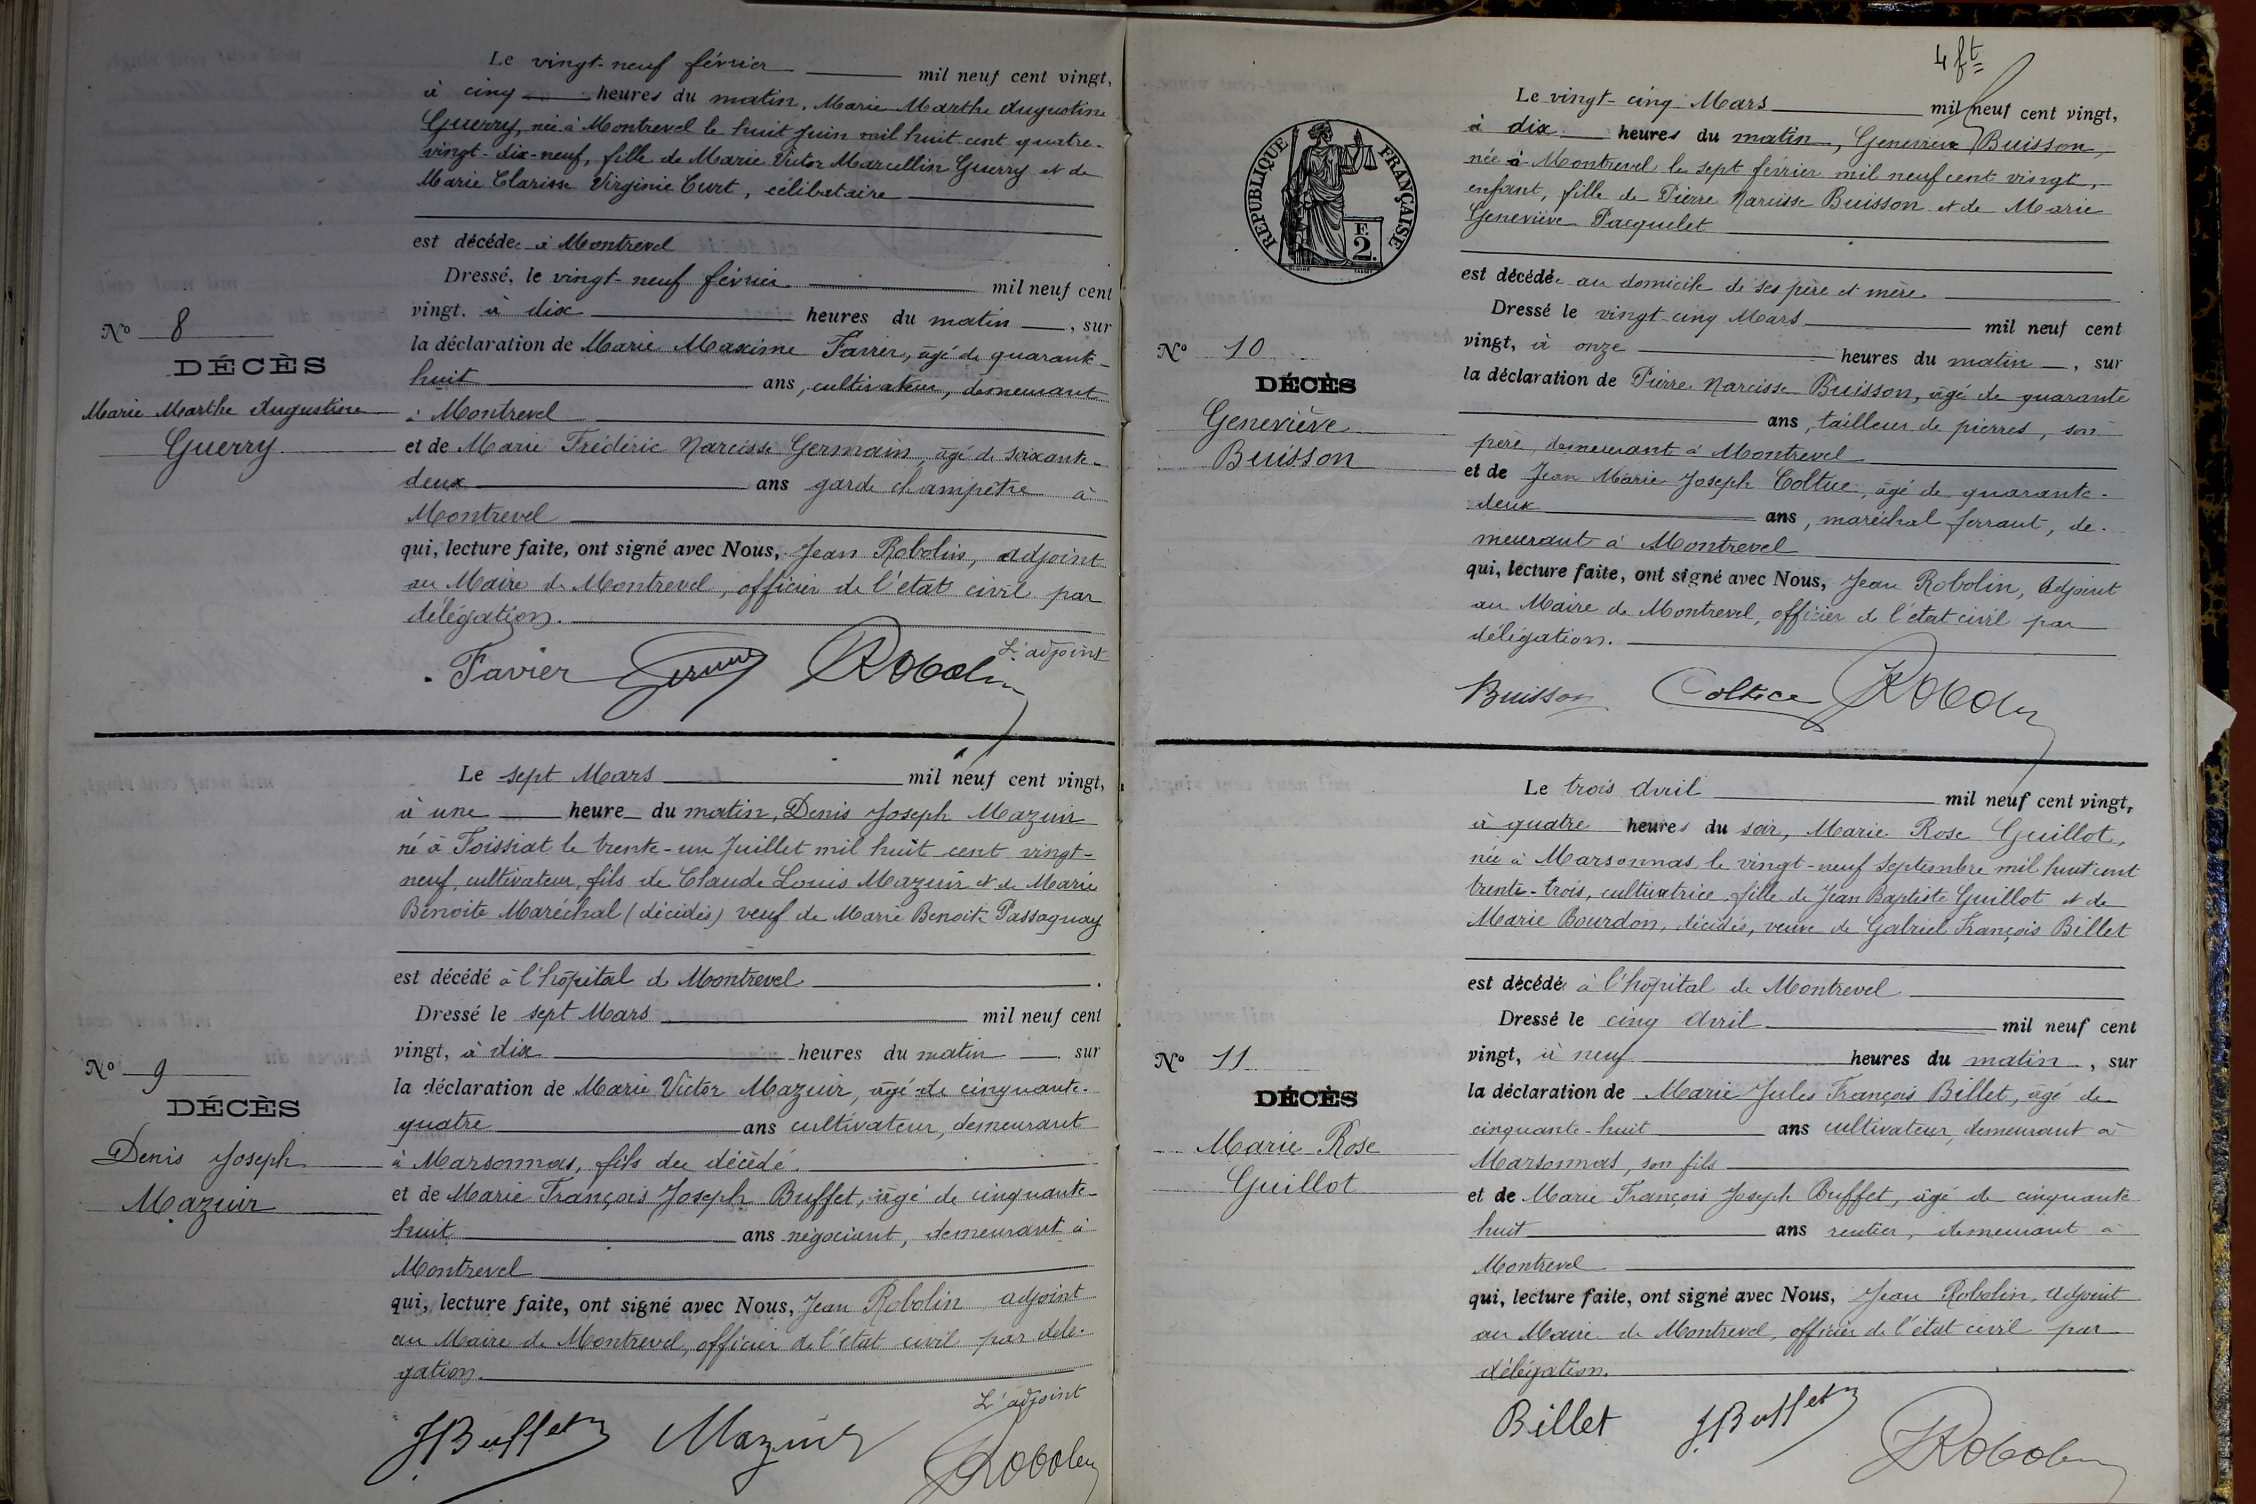 Le vingt-neuf février mil neuf cent vingt,
à cinq heures du matin, Marie Marthe Augustine
Guerry, née à Montrevel le huit Juin mil huit cent quatre-
vingt-dix-neuf, fille de Marie Victor Marcellin Guerry et de
Marie Clarisse Virginie Curt, célibataire
est décédée à Montrevel
Dressé, le vingt-neuf février mil neuf cent
vingt, à dix heures du matin, sur
la déclaration de Marie Maxime Favier, âgé de quarante-
huit ans, cultivateur, demeurant
à Montrevel
et de Marie Frédéric Narcisse Germain, âgé de soixante-
deux ans garde champêtre à
Montrevel
qui, lecture faite, ont signé avec Nous, Jean Robolin, adjoint
au Maire de Montrevel, officier de l'état civil par
délégation.
L'adjoint
Favier Robolin
Nº 8
DÉCÈS
Marie Marthe Augustine
Guerry
Le sept Mars mil neuf cent vingt,
à une heure du matin, Denis Joseph Mazuir
né à Foissiat le trente-un Juillet mil huit cent vingt-
neuf, cultivateur, fils de Claude Louis Mazuir et de Marie
Benoite Maréchal (décédés) veuf de Marie Benoite Passaquay
est décédé à l'hôpital de Montrevel
Dressé le sept Mars mil neuf cent
vingt, à dix heures du matin sur
la déclaration de Marie Victor Mazuir, âgé de cinquante-
quatre ans cultivateur, demeurant
à Marsonnas, fils du décédé.
et de Marie François Joseph Buffet, âgé de cinquante-
huit ans négociant, demeurant à
Montrevel
qui, lecture faite, ont signé avec Nous, Jean Robolin adjoint
au Maire de Montrevel, officier de l'état civil par délé-
gation.
L'adjoint
JBuffet Mazuir JRobolin
Nº 9
DÉCÈS
Denis Joseph
Mazuir
4 ft
RÉPUBLIQUE FRANÇAISE
F.
2.
Le vingt-cinq Mars mil neuf cent vingt,
à dix heures du matin, Geneviève Buisson,
née à Montrevel le sept février mil neuf cent vingt,
enfant, fille de Pierre Narcisse Buisson et de Marie
Geneviève Pacquelet
est décédée au domicile de ses père et mère
Dressé le vingt-cinq Mars mil neuf cent
vingt, à onze heures du matin, sur
la déclaration de Pierre Narcisse Buisson, âgé de quarante
ans, tailleur de pierres, son
père, demeurant à Montrevel
et de Jean Marie Joseph Coltice, âgé de quarante-
deux ans, maréchal ferrant, de-
meurant à Montrevel
qui, lecture faite, ont signé avec Nous, Jean Robolin, Adjoint
au Maire de Montrevel, officier de l'état civil par
délégation.
Buisson Coltice JRobolin
Nº 10
DÉCÈS
Geneviève
Buisson
Le trois Avril mil neuf cent vingt,
à quatre heures du soir, Marie Rose Guillot,
née à Marsonnas le vingt-neuf Septembre mil huit cent
trente-trois, cultivatrice, fille de Jean Baptiste Guillot et de
Marie Bourdon, décédés, veuve de Gabriel François Billet
est décédée à l'hôpital de Montrevel
Dressé le cinq Avril mil neuf cent
vingt, à neuf heures du matin, sur
la déclaration de Marie Jules François Billet, âgé de
cinquante-huit ans cultivateur, demeurant à
Marsonnas, son fils
et de Marie François Joseph Buffet, âgé de cinquante
huit ans rentier, demeurant à
Montrevel
qui, lecture faite, ont signé avec Nous, Jean Robolin, Adjoint
au Maire de Montrevel, officier de l'état civil par
délégation.
Billet JBuffet JRobolin
Nº 11
DÉCÈS
Marie Rose
Guillot